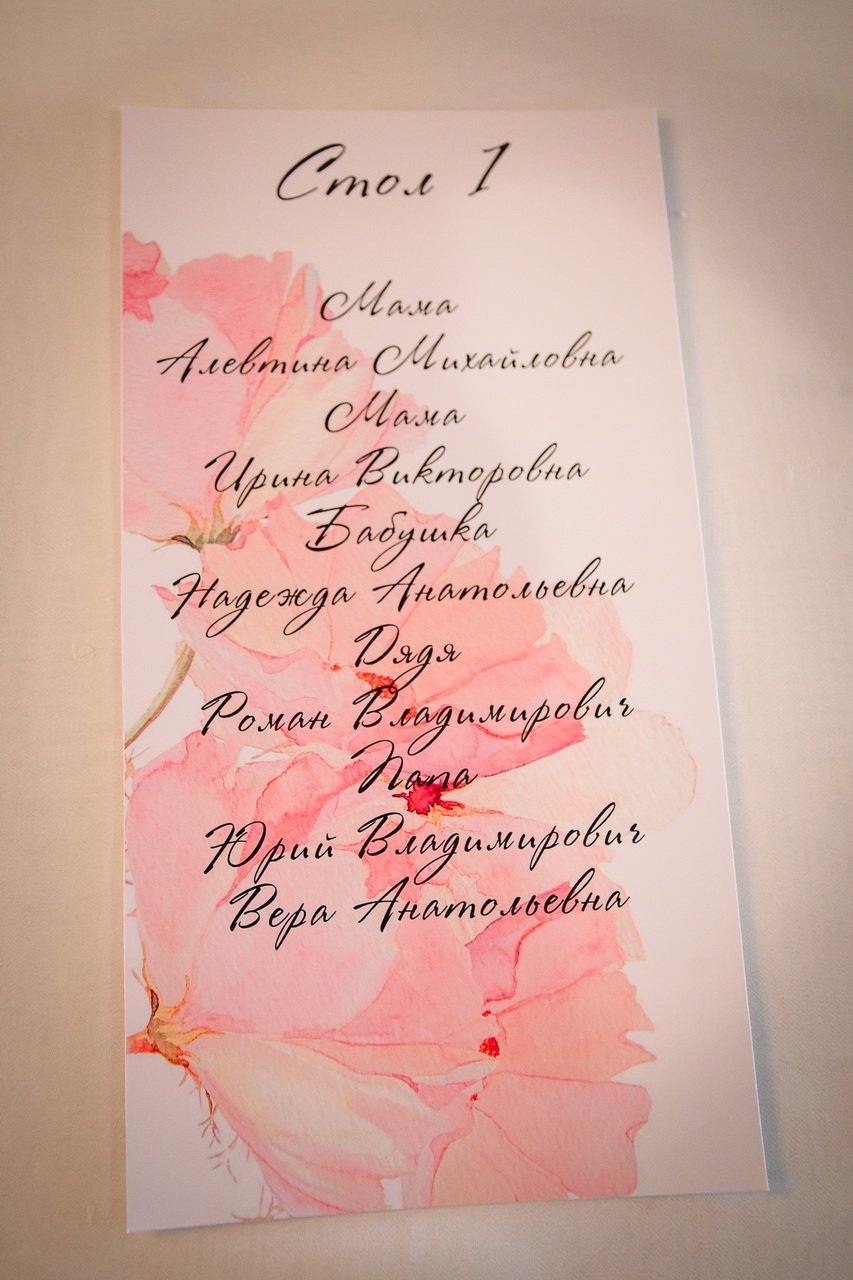 Стол 1
Мама
Алевтина Михайловна
Мама
Ирина Викторовна
Бабушка
Надежда Анатольевна
Дядя
Роман Владимирович
Папа
Юрий Владимирович
Вера Анатольевна